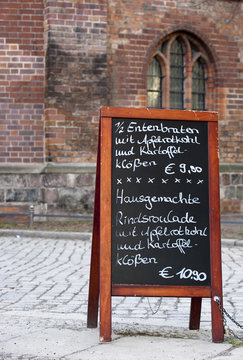 ½ Entenbraten
mit Apfelrotkohl
und Kartoffel-
klößen
€ 9,80
x x x x x x x
Hausgemachte
Rindsroulade
mit Apfelrotkohl
und Kartoffel-
klößen
€ 10,90